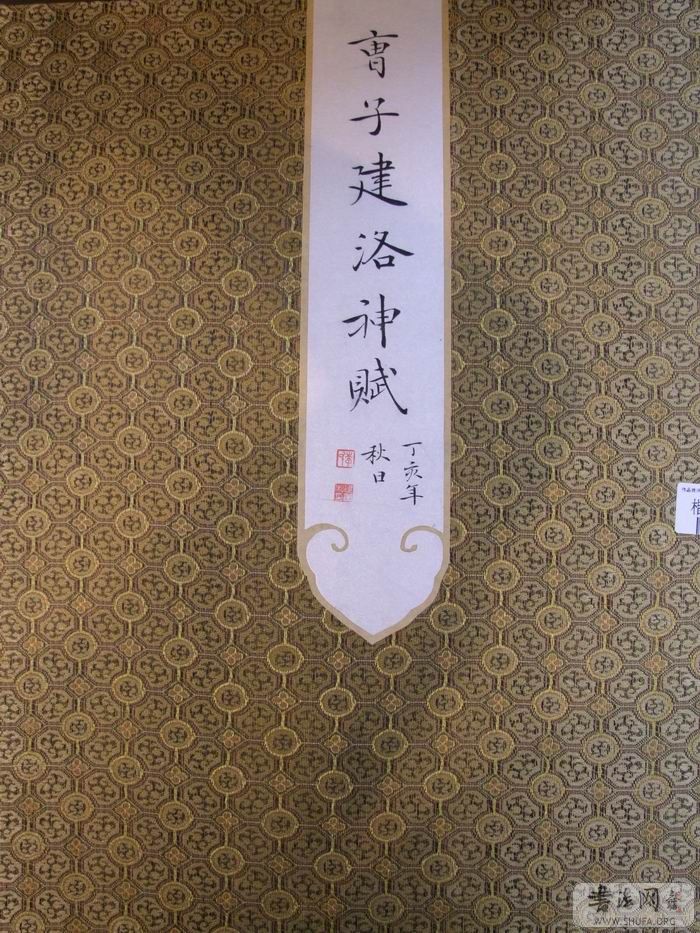 曺子建洛神賦
丁亥年
秋日
書法网
WWW.SHUFA.ORG